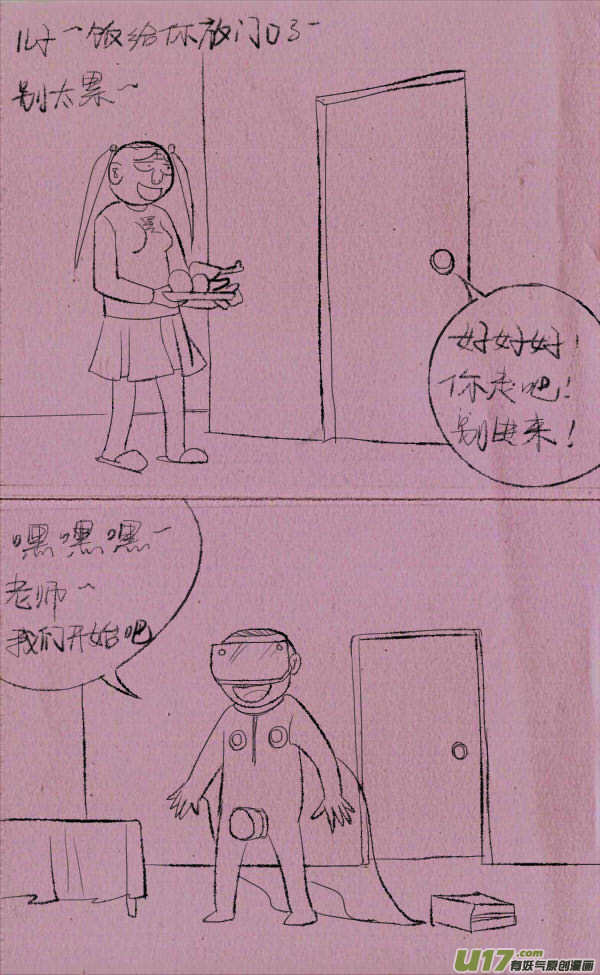 儿子~饭给你放门口了~
别太累~
好好好!
你走吧!
别进来!
嘿嘿嘿~
老师~
我们开始吧
U17.com
有妖气原创漫画